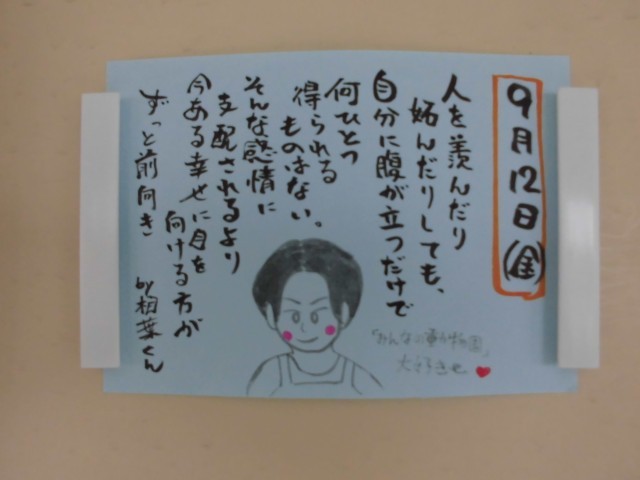 9月12日(金)
人を羨んだり
妬んだりしても、
自分に腹が立つだけで
何ひとつ
得られる
ものはない。
そんな感情に
支配されるより
今ある幸せに目を
向ける方が
ずっと前向き
by相葉くん
「みんなの動物園」
大好きせ